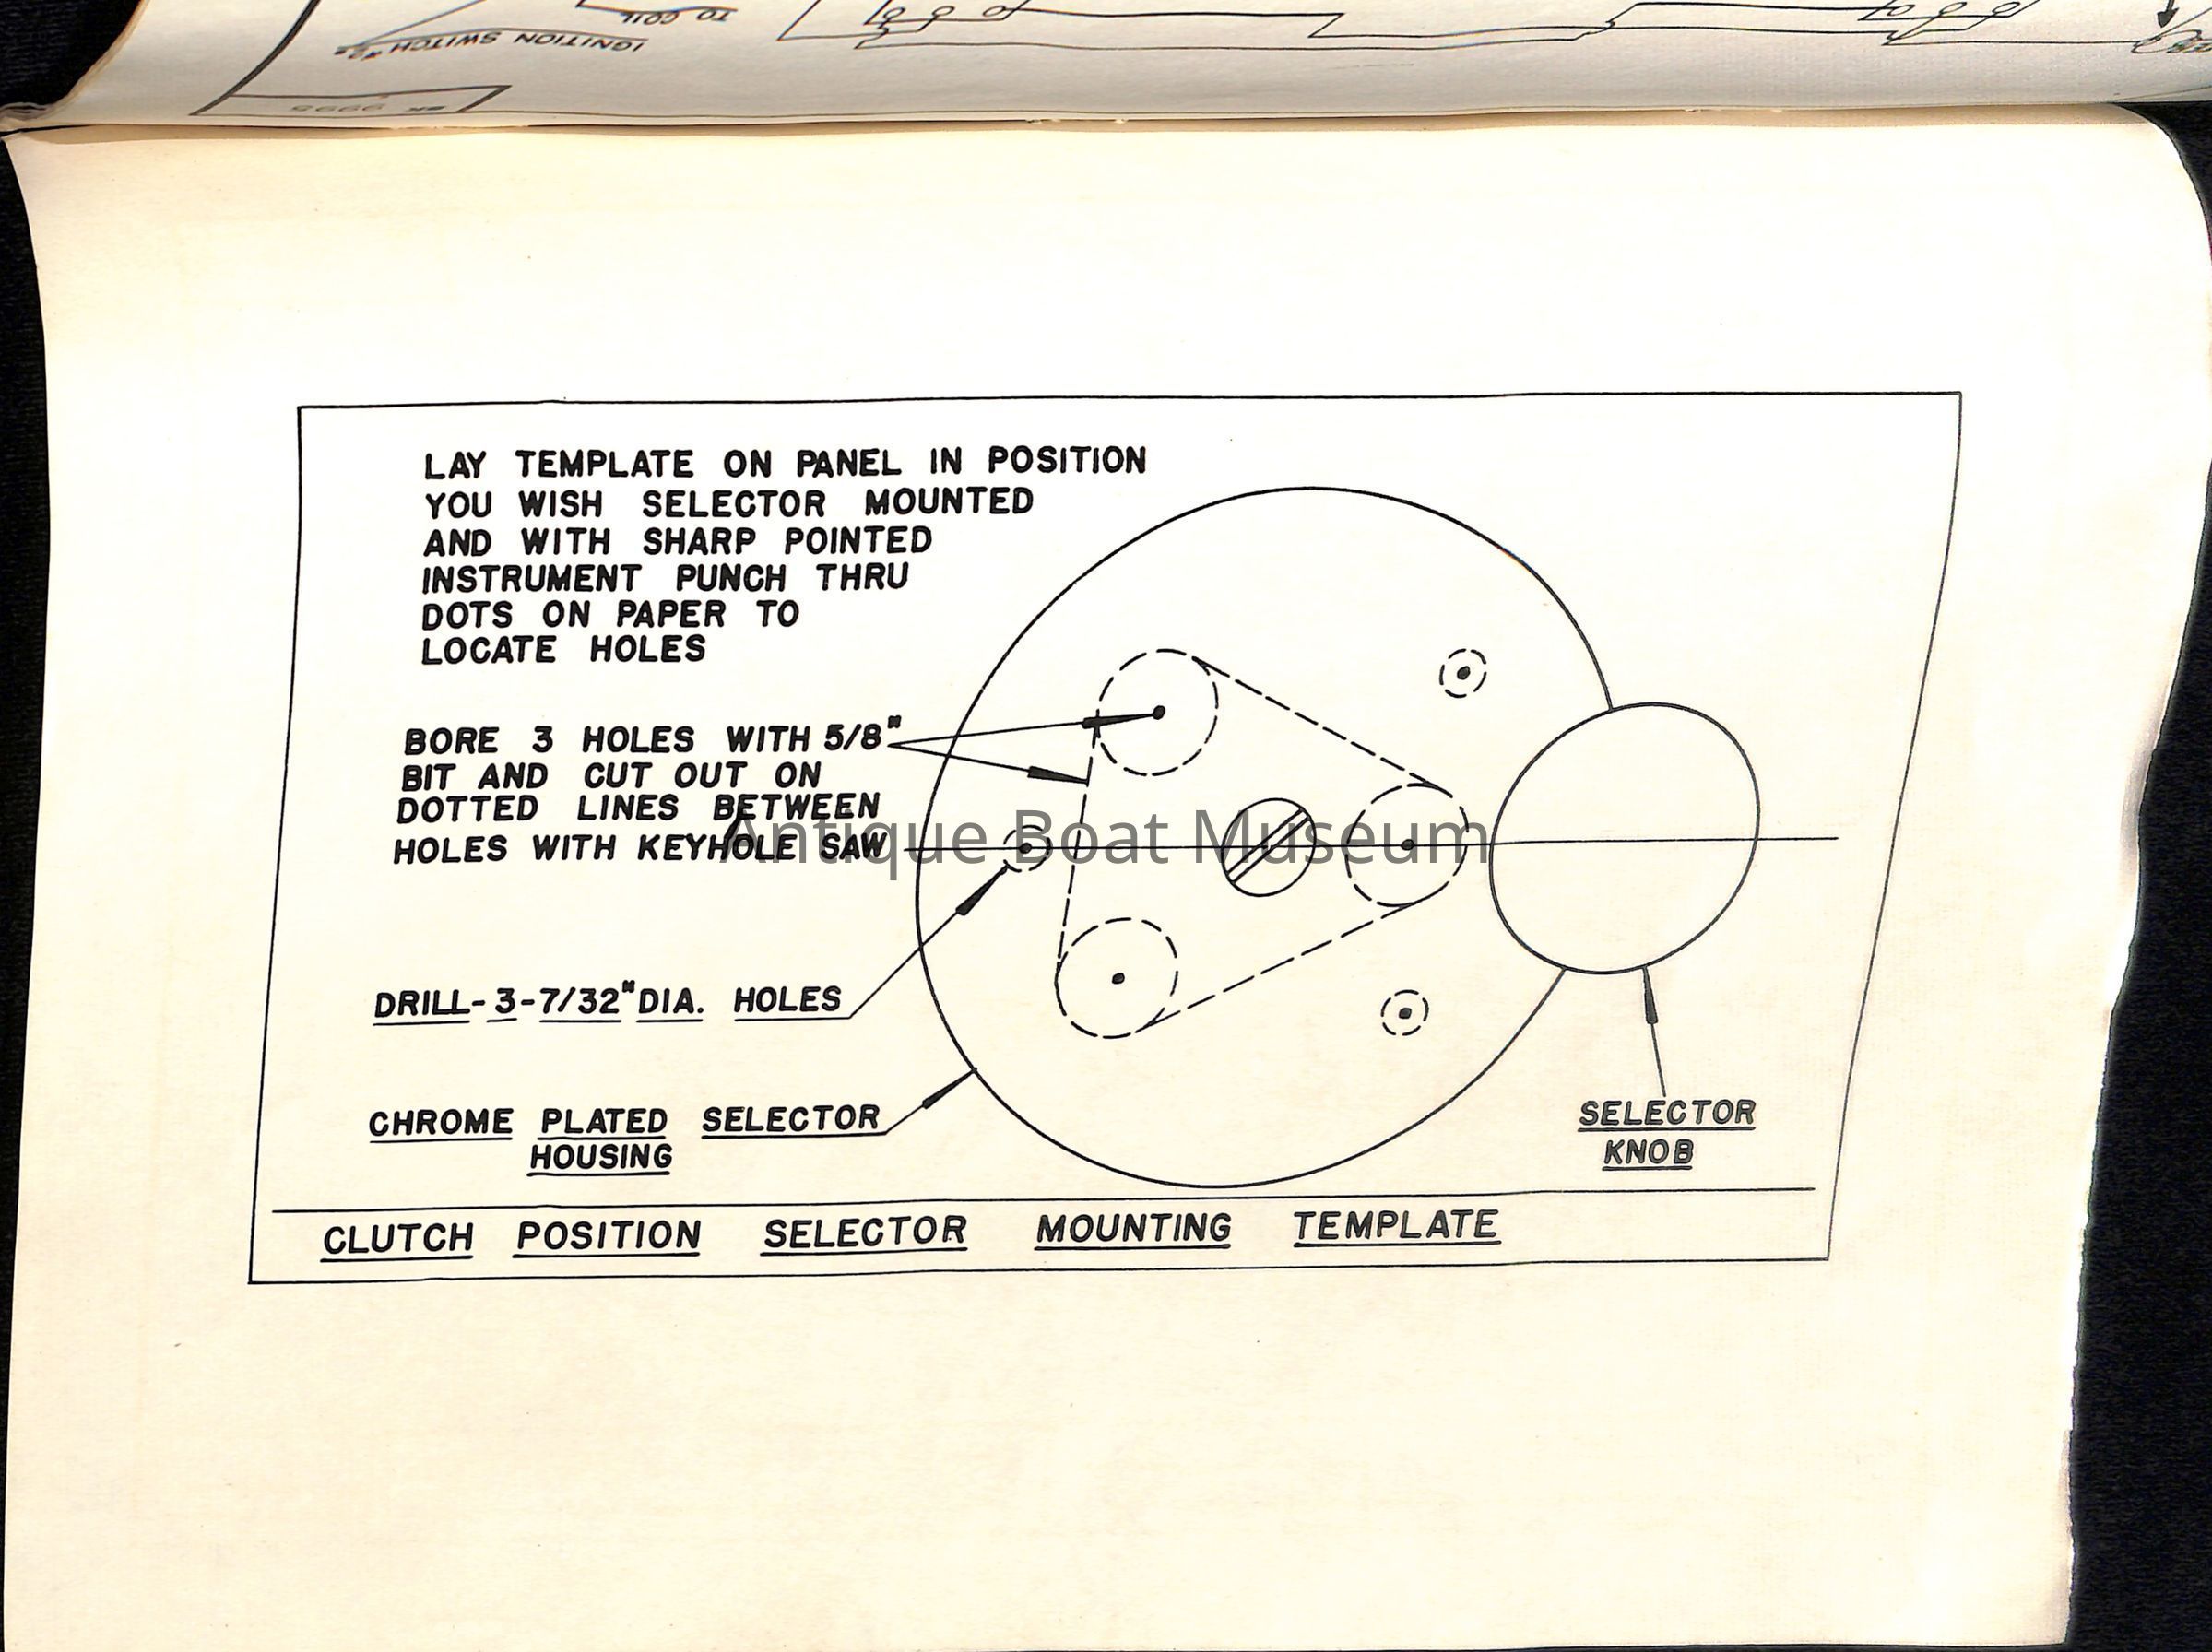 TO COIL
IGNITION SWITCH #2
SK 9998
LAY TEMPLATE ON PANEL IN POSITION
YOU WISH SELECTOR MOUNTED
AND WITH SHARP POINTED
INSTRUMENT PUNCH THRU
DOTS ON PAPER TO
LOCATE HOLES
BORE 3 HOLES WITH 5/8"
BIT AND CUT OUT ON
DOTTED LINES BETWEEN
HOLES WITH KEYHOLE SAW
Antique Boat Museum
DRILL-3-7/32" DIA. HOLES
CHROME PLATED SELECTOR
HOUSING
SELECTOR
KNOB
CLUTCH POSITION SELECTOR MOUNTING TEMPLATE